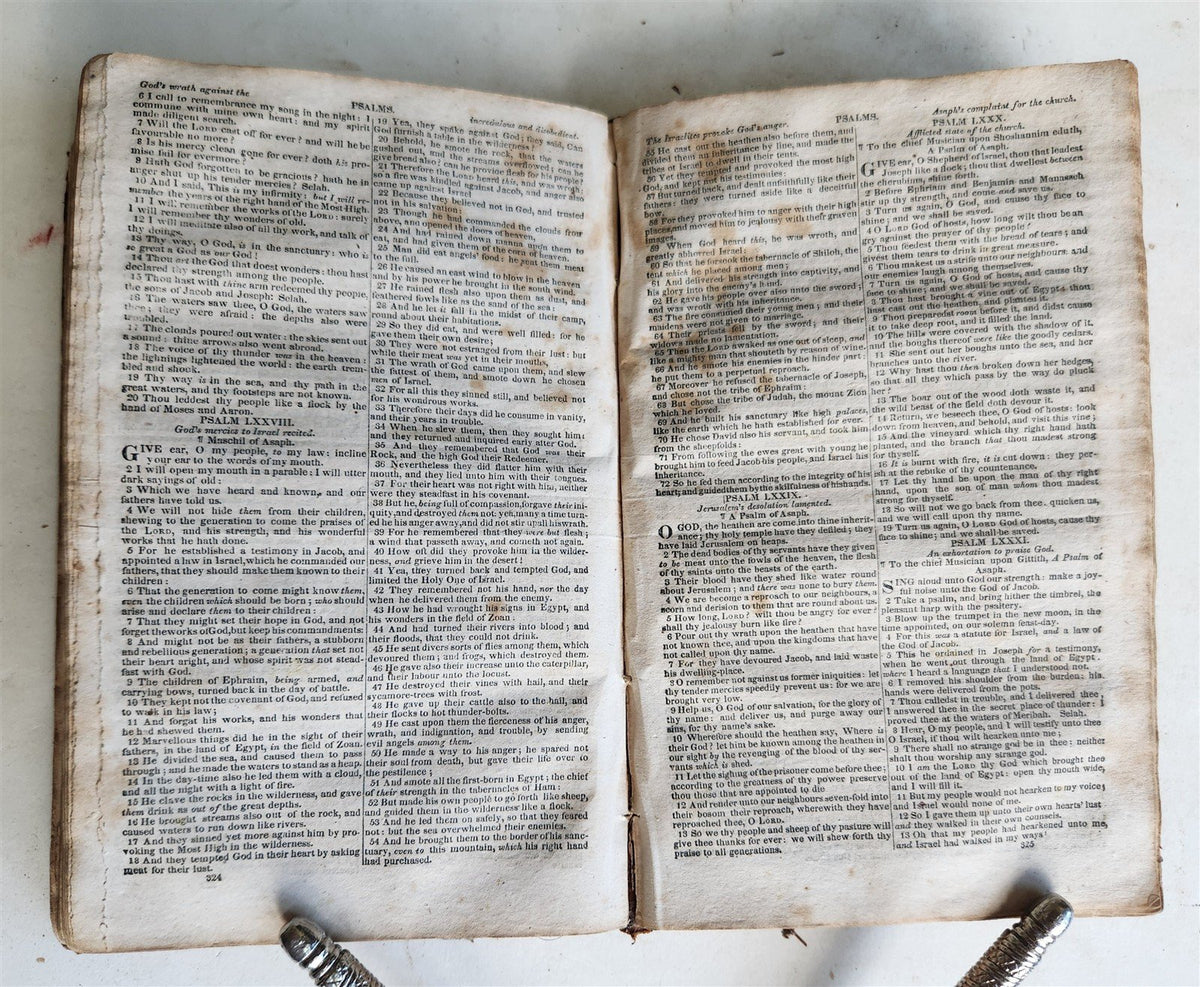 God's wrath against the
PSALMS.
incredulous and disobedient.
6 I call to remembrance my song in the night: I
commune with mine own heart: and my spirit
made diligent search.
7 Will the LORD cast off for ever? and will he be
favourable no more?
8 Is his mercy clean gone for ever? doth his pro-
mise fail for evermore?
9 Hath God forgotten to be gracious? hath he in
anger shut up his tender mercies? Selah.
10 And I said, This is my infirmity: but I will re-
member the years of the right hand of the Most High.
11 I will remember the works of the LORD: surely
I will remember thy wonders of old.
12 I will meditate also of all thy work, and talk of
thy doings.
13 Thy way, O God, is in the sanctuary: who is
so great a God as our God!
14 Thou art the God that doest wonders: thou hast
declared thy strength among the people.
15 Thou hast with thine arm redeemed thy people,
the sons of Jacob and Joseph: Selah.
16 The waters saw thee, O God, the waters saw
thee; they were afraid: the depths also were
troubled.
17 The clouds poured out water: the skies sent out
a sound: thine arrows also went abroad.
18 The voice of thy thunder was in the heaven:
the lightnings lightened the world: the earth trem-
bled and shook.
19 Thy way is in the sea, and thy path in the
great waters, and thy footsteps are not known.
20 Thou leddest thy people like a flock by the
hand of Moses and Aaron.
PSALM LXXVIII.
God's mercies to Israel recited.
¶ Maschil of Asaph.
GIVE ear, O my people, to my law: incline
your ear to the words of my mouth.
2 I will open my mouth in a parable: I will utter
dark sayings of old:
3 Which we have heard and known, and our
fathers have told us.
4 We will not hide them from their children,
shewing to the generation to come the praises of
the LORD, and his strength, and his wonderful
works that he hath done.
5 For he established a testimony in Jacob, and
appointed a law in Israel, which he commanded our
fathers, that they should make them known to their
children:
6 That the generation to come might know them,
even the children which should be born; who should
arise and declare them to their children:
7 That they might set their hope in God, and not
forget the works of God, but keep his commandments:
8 And might not be as their fathers, a stubborn
and rebellious generation; a generation that set not
their heart aright, and whose spirit was not stead-
fast with God.
9 The children of Ephraim, being armed, and
carrying bows, turned back in the day of battle.
10 They kept not the covenant of God, and refused
to walk in his law;
11 And forgat his works, and his wonders that
he had shewed them.
12 Marvellous things did he in the sight of their
fathers, in the land of Egypt, in the field of Zoan.
13 He divided the sea, and caused them to pass
through; and he made the waters to stand as a heap.
14 In the day-time also he led them with a cloud,
and all the night with a light of fire.
15 He clave the rocks in the wilderness, and gave
them drink as out of the great depths.
16 He brought streams also out of the rock, and
caused waters to run down like rivers.
17 And they sinned yet more against him by pro-
voking the Most High in the wilderness.
18 And they tempted God in their heart by asking
meat for their lust.
324
19 Yea, they spake against God; they said, Can
God furnish a table in the wilderness?
20 Behold, he smote the rock, that the waters
gushed out, and the streams overflowed; can he
give bread also? can he provide flesh for his people?
21 Therefore the LORD heard this, and was wroth:
so a fire was kindled against Jacob, and anger also
came up against Israel
22 Because they believed not in God, and trusted
not in his salvation:
23 Though he had commanded the clouds from
above, and opened the doors of heaven,
24 And had rained down manna upon them to
eat, and had given them of the corn of heaven.
25 Man did eat angels' food: he sent them meat
to the full.
26 He caused an east wind to blow in the heaven
and by his power he brought in the south wind.
27 He rained flesh also upon them as dust, and
feathered fowls like as the sand of the sea:
28 And he let it fall in the midst of their camp,
round about their habitations.
29 So they did eat, and were well filled: for he
gave them their own desire;
30 They were not estranged from their lust: but
while their meat was yet in their mouths,
31 The wrath of God came upon them, and slew
the fattest of them, and smote down the chosen
men of Israel.
32 For all this they sinned still, and believed not
for his wondrous works.
33 Therefore their days did he consume in vanity,
and their years in trouble.
34 When he slew them, then they sought him:
and they returned and inquired early after God.
35 And they remembered that God was their
Rock, and the high God their Redeemer.
36 Nevertheless they did flatter him with their
mouth, and they lied unto him with their tongues.
37 For their heart was not right with him, neither
were they steadfast in his covenant.
38 But he, being full of compassion, forgave their ini-
quity, and destroyed them not: yea, many a time turn-
ed he his anger away, and did not stir up all his wrath.
39 For he remembered that they were but flesh;
a wind that passeth away, and cometh not again.
40 How oft did they provoke him in the wilder-
ness, and grieve him in the desert!
41 Yea, they turned back and tempted God, and
limited the Holy One of Israel.
42 They remembered not his hand, nor the day
when he delivered them from the enemy.
43 How he had wrought his signs in Egypt, and
his wonders in the field of Zoan:
44 And had turned their rivers into blood; and
their floods, that they could not drink.
45 He sent divers sorts of flies among them, which
devoured them; and frogs, which destroyed them.
46 He gave also their increase unto the caterpillar,
and their labour unto the locust.
47 He destroyed their vines with hail, and their
sycamore-trees with frost.
48 He gave up their cattle also to the hail, and
their flocks to hot thunder-bolts.
49 He cast upon them the fierceness of his anger,
wrath, and indignation, and trouble, by sending
evil angels among them.
50 He made a way to his anger; he spared not
their soul from death, but gave their life over to
the pestilence;
51 And smote all the first-born in Egypt; the chief
of their strength in the tabernacles of Ham:
52 But made his own people to go forth like sheep,
and guided them in the wilderness like a flock.
53 And he led them on safely, so that they feared
not: but the sea overwhelmed their enemies.
54 And he brought them to the border of his sanc-
tuary, even to this mountain, which his right hand
had purchased.
The Israelites provoke God's anger.
PSALMS.
Asaph's complaint for the church.
55 He cast out the heathen also before them, and
divided them an inheritance by line, and made the
tribes of Israel to dwell in their tents.
56 Yet they tempted and provoked the most high
God, and kept not his testimonies:
57 But turned back, and dealt unfaithfully like their
fathers: they were turned aside like a deceitful
bow.
58 For they provoked him to anger with their high
places, and moved him to jealousy with their graven
images.
59 When God heard this, he was wroth, and
greatly abhorred Israel:
60 So that he forsook the tabernacle of Shiloh, the
tent which he placed among men;
61 And delivered his strength into captivity, and
his glory into the enemy's hand.
62 He gave his people over also unto the sword;
and was wroth with his inheritance.
63 The fire consumed their young men; and their
maidens were not given to marriage.
64 Their priests fell by the sword; and their
widows made no lamentation.
65 Then the LORD awaked as one out of sleep, and
like a mighty man that shouteth by reason of wine.
66 And he smote his enemies in the hinder part:
he put them to a perpetual reproach.
67 Moreover he refused the tabernacle of Joseph,
and chose not the tribe of Ephraim:
68 But chose the tribe of Judah, the mount Zion
which he loved.
69 And he built his sanctuary like high palaces,
like the earth which he hath established for ever.
70 He chose David also his servant, and took him
from the sheepfolds:
71 From following the ewes great with young he
brought him to feed Jacob his people, and Israel his
inheritance.
72 So he fed them according to the integrity of his
heart; and guided them by the skilfulness of his hands.
PSALM LXXIX.
Jerusalem's desolation lamented.
¶ A Psalm of Asaph.
O GOD, the heathen are come into thine inherit-
ance; thy holy temple have they defiled; they
have laid Jerusalem on heaps.
2 The dead bodies of thy servants have they given
to be meat unto the fowls of the heaven, the flesh
of thy saints unto the beasts of the earth.
3 Their blood have they shed like water round
about Jerusalem; and there was none to bury them.
4 We are become a reproach to our neighbours, a
scorn and derision to them that are round about us.
5 How long, LORD? wilt thou be angry for ever?
shall thy jealousy burn like fire?
6 Pour out thy wrath upon the heathen that have
not known thee, and upon the kingdoms that have
not called upon thy name.
7 For they have devoured Jacob, and laid waste
his dwelling-place.
8 O remember not against us former iniquities: let
thy tender mercies speedily prevent us: for we are
brought very low.
9 Help us, O God of our salvation, for the glory of
thy name: and deliver us, and purge away our
sins, for thy name's sake.
10 Wherefore should the heathen say, Where is
their God? let him be known among the heathen in
our sight by the revenging of the blood of thy ser-
vants which is shed.
11 Let the sighing of the prisoner come before thee;
according to the greatness of thy power preserve
thou those that are appointed to die
12 And render unto our neighbours seven-fold into
their bosom their reproach, wherewith they have
reproached thee, O LORD.
13 So we thy people and sheep of thy pasture will
give thee thanks for ever: we will shew forth thy
praise to all generations.
PSALM LXXX.
Afflicted state of the church.
¶ To the chief Musician upon Shoshannim eduth,
A Psalm of Asaph.
GIVE ear, O Shepherd of Israel, thou that leadest
Joseph like a flock; thou that dwellest between
the cherubims, shine forth.
2 Before Ephraim and Benjamin and Manasseh
stir up thy strength, and come and save us.
3 Turn us again, O God, and cause thy face to
shine; and we shall be saved.
4 O LORD God of hosts, how long wilt thou be an-
gry against the prayer of thy people?
5 Thou feedest them with the bread of tears; and
givest them tears to drink in great measure.
6 Thou makest us a strife unto our neighbours: and
our enemies laugh among themselves.
7 Turn us again, O God of hosts, and cause thy
face to shine; and we shall be saved.
8 Thou hast brought a vine out of Egypt: thou
hast cast out the heathen, and planted it.
9 Thou preparedst room before it, and didst cause
it to take deep root, and it filled the land.
10 The hills were covered with the shadow of it,
and the boughs thereof were like the goodly cedars.
11 She sent out her boughs unto the sea, and her
branches unto the river.
12 Why hast thou then broken down her hedges,
so that all they which pass by the way do pluck
her?
13 The boar out of the wood doth waste it, and
the wild beast of the field doth devour it.
14 Return, we beseech thee, O God of hosts: look
down from heaven, and behold, and visit this vine;
15 And the vineyard which thy right hand hath
planted, and the branch that thou madest strong
for thyself.
16 It is burnt with fire, it is cut down: they per-
ish at the rebuke of thy countenance.
17 Let thy hand be upon the man of thy right
hand, upon the son of man whom thou madest
strong for thyself.
18 So will not we go back from thee. quicken us,
and we will call upon thy name.
19 Turn us again, O LORD God of hosts, cause thy
face to shine; and we shall be saved.
PSALM LXXXI.
An exhortation to praise God.
¶ To the chief Musician upon Gittith, A Psalm of
Asaph.
SING aloud unto God our strength: make a joy-
ful noise unto the God of Jacob.
2 Take a psalm, and bring hither the timbrel, the
pleasant harp with the psaltery.
3 Blow up the trumpet in the new moon, in the
time appointed, on our solemn feast-day.
4 For this was a statute for Israel, and a law of
the God of Jacob.
5 This he ordained in Joseph for a testimony,
when he went out through the land of Egypt:
where I heard a language that I understood not.
6 I removed his shoulder from the burden: his
hands were delivered from the pots.
7 Thou calledst in trouble, and I delivered thee;
I answered thee in the secret place of thunder: I
proved thee at the waters of Meribah. Selah.
8 Hear, O my people, and I will testify unto thee
O Israel, if thou wilt hearken unto me;
9 There shall no strange god be in thee: neither
shalt thou worship any strange god.
10 I am the LORD thy God which brought thee
out of the land of Egypt: open thy mouth wide,
and I will fill it.
11 But my people would not hearken to my voice;
and Israel would none of me.
12 So I gave them up unto their own hearts' lust
and they walked in their own counsels.
13 Oh that my people had hearkened unto me,
and Israel had walked in my ways!
325